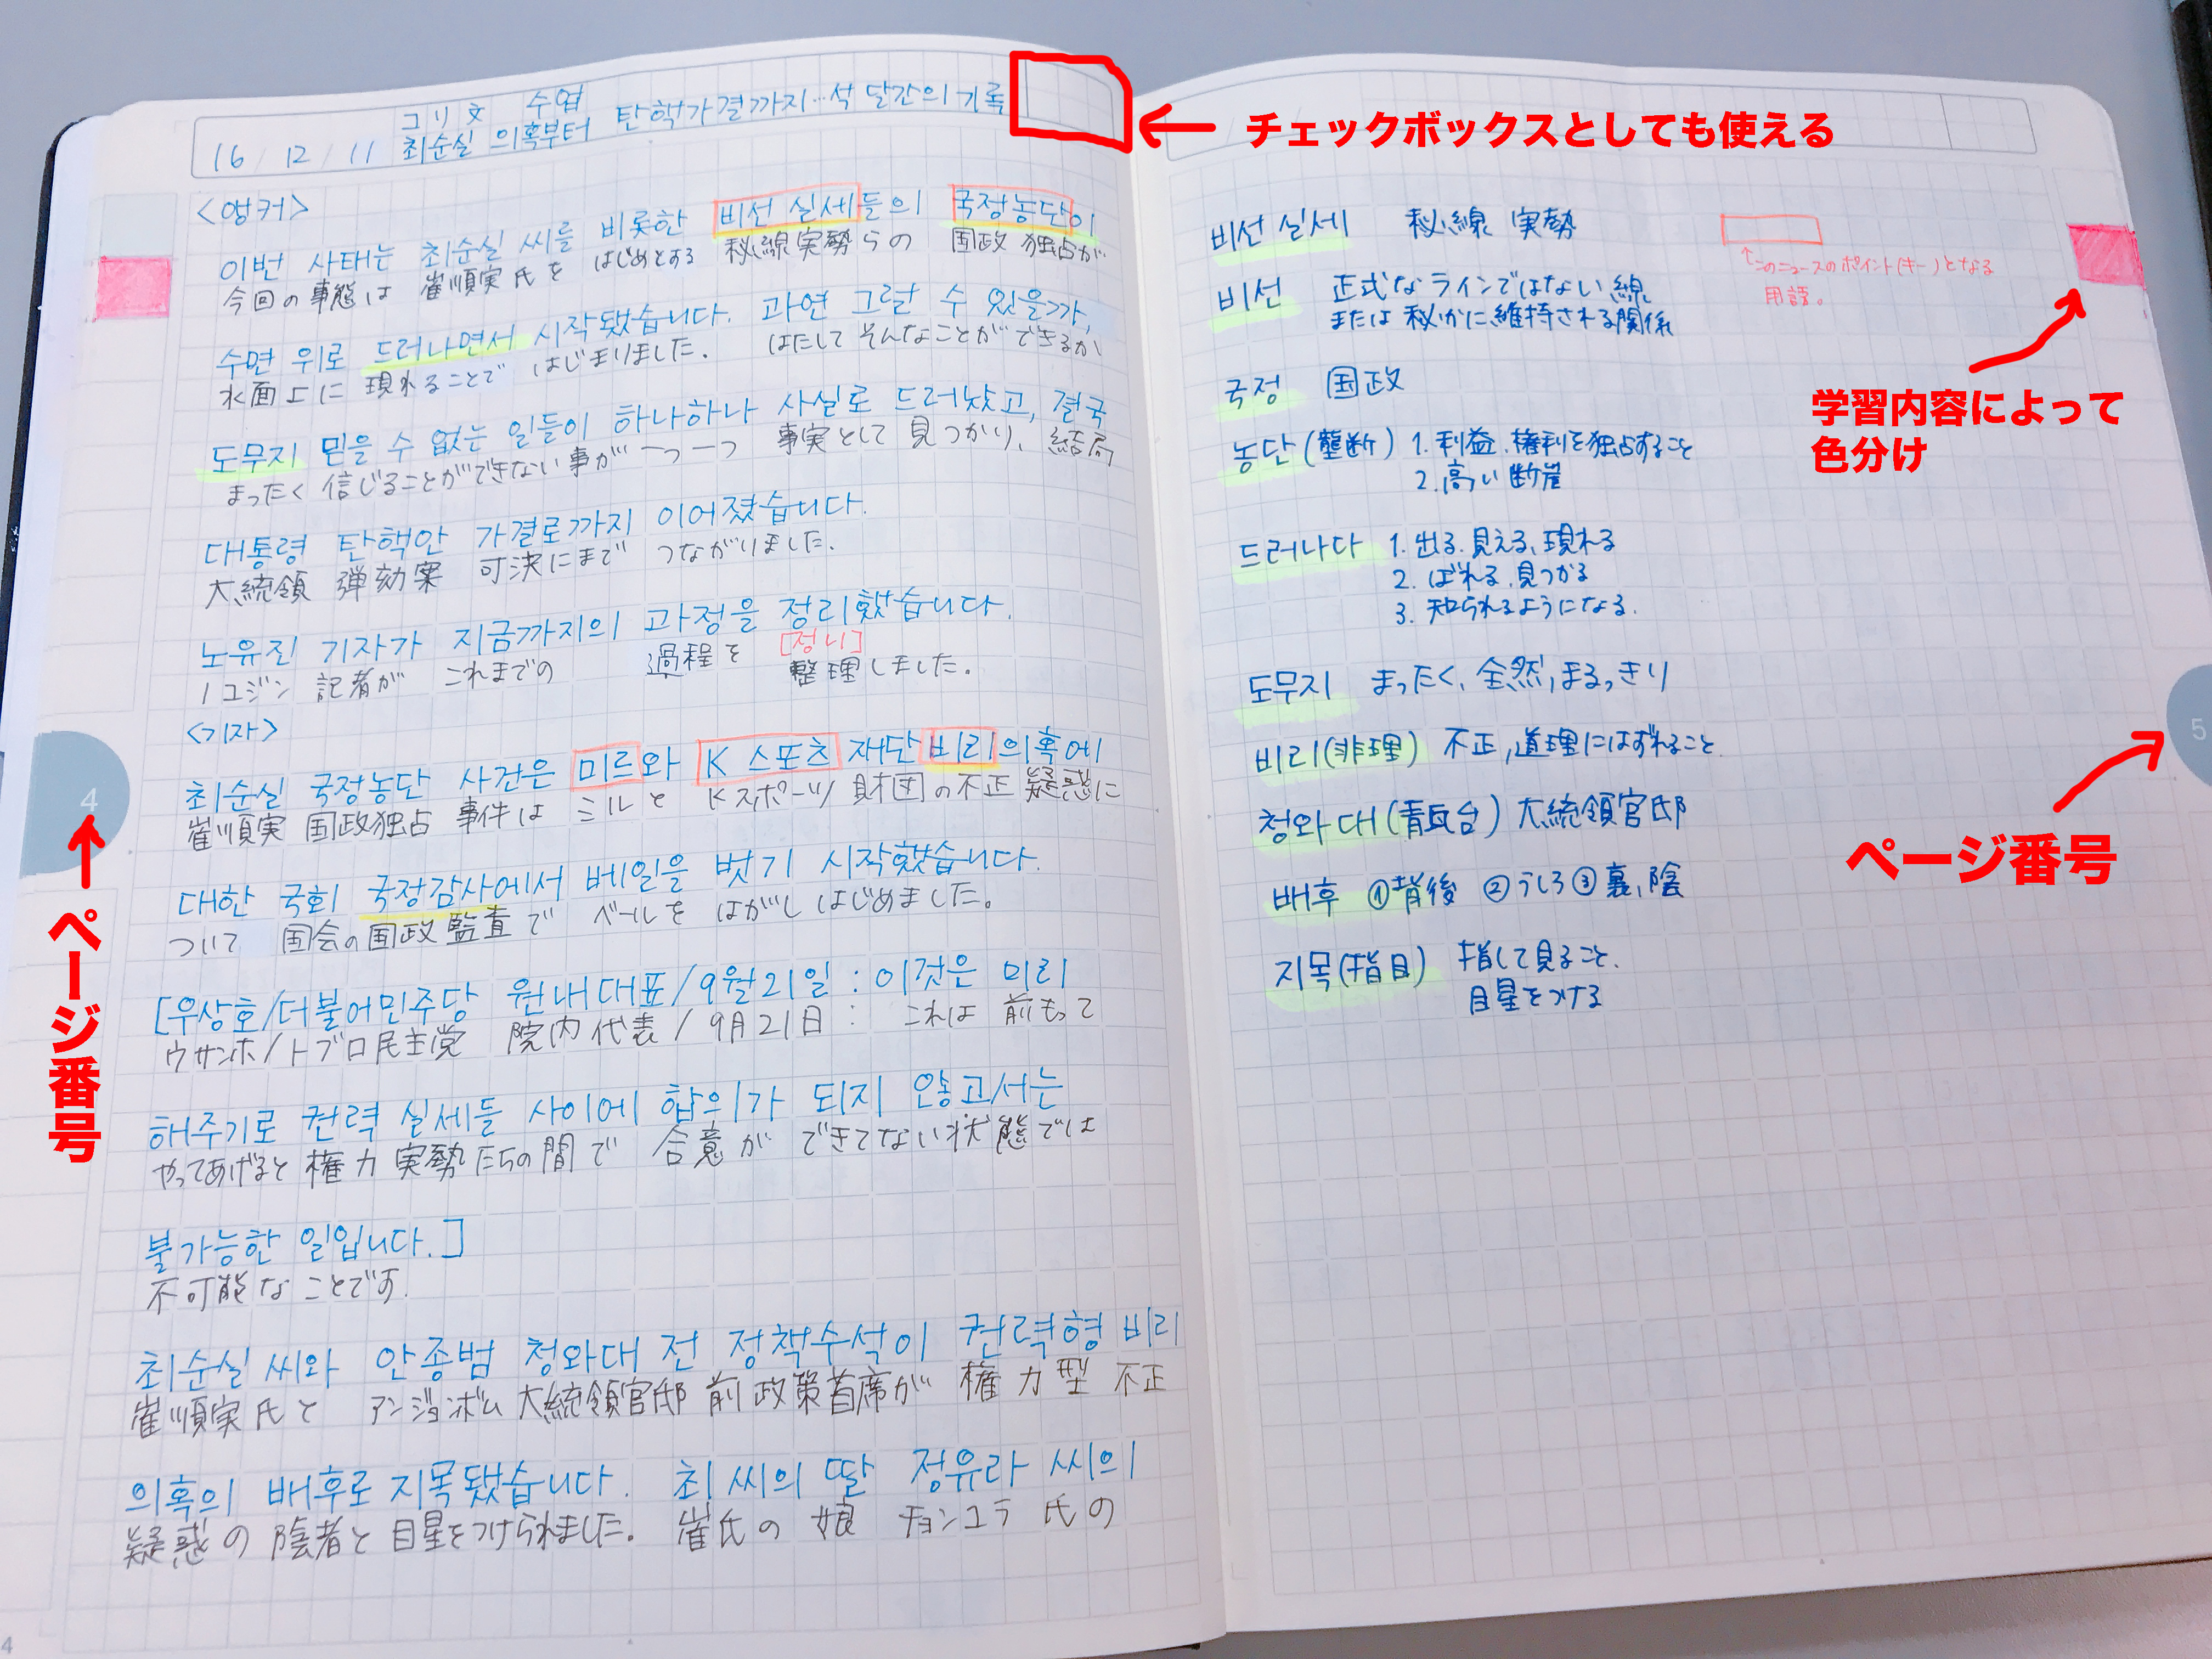 コリ文 수업
16/12/11 최순실 의혹부터 탄핵가결까지…석 달간의 기록
チェックボックスとしても使える
<앵커>
이번 사태는 최순실 씨를 비롯한 비선 실세들의 국정농단이
今回の事態は 崔順実氏を はじめとする 秘線実勢らの 国政 独占が
수면 위로 드러나면서 시작됐습니다. 과연 그럴 수 있을까,
水面上に 現れることで はじまりました。 はたして そんなことができるか
도무지 믿을 수 없는 일들이 하나하나 사실로 드러났고, 결국
まったく 信じることができない事が 一つ一つ 事実として 見つかり、結局
대통령 탄핵안 가결로까지 이어졌습니다.
大統領 弾劾案 可決にまで つながりました.
노유진 기자가 지금까지의 과정을 정리했습니다.
[정니]
ノユジン 記者が これまでの 過程を 整理しました。
<기자>
최순실 국정농단 사건은 미르와 K스포츠 재단 비리의혹에
崔順実 国政独占 事件は ミルと Kスポーツ財団の不正 疑惑に
대한 국회 국정감사에서 베일을 벗기 시작했습니다.
ついて 国会の国政監査で ベールを はがしはじめました。
[우상호/더불어민주당 원내대표/9월21일 : 이것은 미리
ウサンホ/トブロ民主党 院内代表/9月21日 : これは 前もって
해주기로 권력 실세들 사이에 합의가 되지 않고서는
やってあげると 権力 実勢たちの間で 合意が できてない状態では
불가능한 일입니다.]
不可能な ことです.
최순실 씨와 안종범 청와대 전 정책수석이 권력형 비리
崔順実氏と アンジョンボム 大統領官邸 前 政策首席が 権力型 不正
의혹의 배후로 지목됐습니다. 최 씨의 딸 정유라 씨의
疑惑の 陰者と 目星をつけられました。 崔氏の 娘 チョンユラ 氏の
4
ページ番号
4
비선 실세 秘線 実勢
↑このニュースのポイント(キー)となる
用語。
비선 正式なラインではない線
または 秘かに維持される関係
국정 国政
농단(壟断) 1. 利益、権利を独占すること
2. 高い断崖
드러나다 1. 出る、見える、現れる
2. ばれる、見つかる
3. 知られるようになる.
도무지 まったく、全然、まるっきり
비리(非理) 不正, 道理にはずれること.
청와대(青瓦台) 大統領官邸
배후 ①背後 ②うしろ ③裏、陰
지목(指目) 指して見ること.
目星をつける
学習内容によって
色分け
5
ページ番号